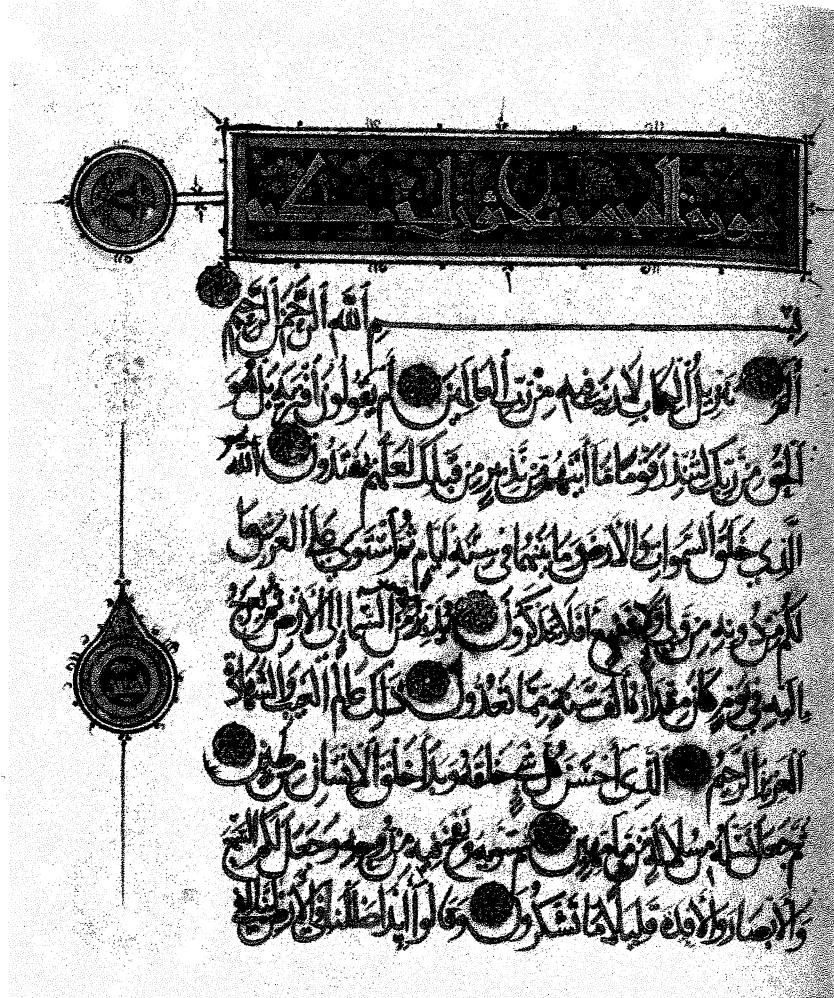 سورة السجدة ثلثون
بسم الله الرحمن الرحيم
الم تنزيل الكتاب لا ريب فيه من رب العالمين أم يقولون افتريه بل هو
الحق من ربك لتنذر قوما ما أتيهم من نذير من قبلك لعلهم يهتدون الله
الذي خلق السموات والأرض وما بينهما في ستة أيام ثم استوى على العرش ما
لكم من دونه من ولي ولا شفيع أفلا تتذكرون يدبر الأمر من السماء إلى الأرض ثم يعرج
إليه في يوم كان مقداره ألف سنة مما تعدون ذلك عالم الغيب والشهادة
العزيز الرحيم الذي أحسن كل شيء خلقه وبدأ خلق الإنسان من طين
ثم جعل نسله من سلالة من ماء مهين ثم سويه ونفخ فيه من روحه وجعل لكم السمع
والأبصار والأفئدة قليلا ما تشكرون وقالوا أئذا ضللنا في الأرض أئنا لفي